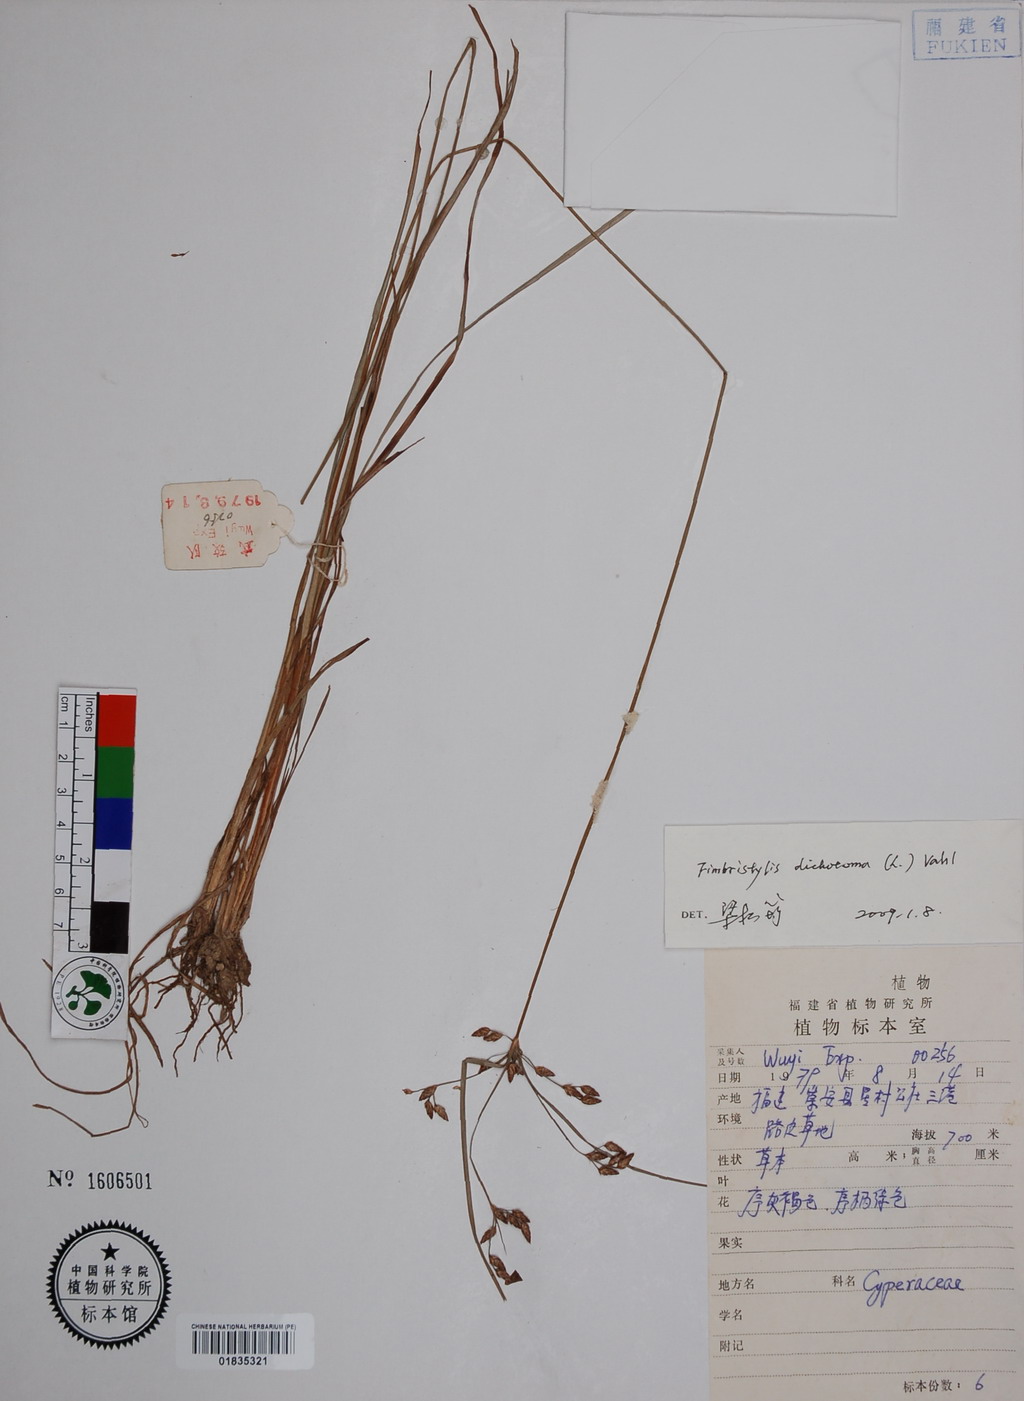 福建省
FUKIEN
1979.8.14
0256
Wuyi Exp
武攷队
Inches
cm
1
2
3
4
5
6
7
1
2
3
Fimbristylis dichotoma (L.) Vahl
DET. 梁松筠 2009.1.8.
植物
福建省植物研究所
植物标本室
采集人及号数 Wuyi Exp. 00256
日期 1979年8月14日
产地 福建崇安县星村公社三港
环境 路边草地 海拔700米
性状 草本 高 米: 胸高直径 厘米
叶
花 序褐色.序柄绿色
果实
地方名 科名 Cyperaceae
学名
附记
标本份数: 6
№ 1606501
中国科学院
植物研究所
标本馆
CHINESE NATIONAL HERBARIUM (PE)
01835321